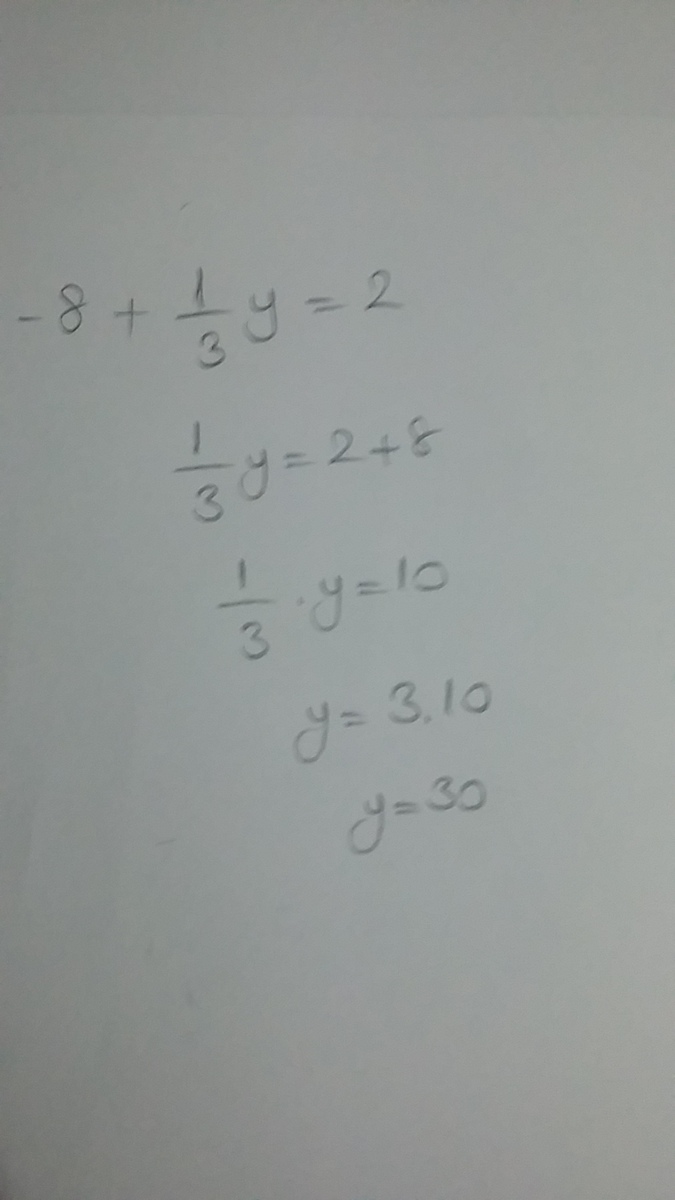 -8 + 1/3 y = 2
1/3 y = 2+8
1/3 . y = 10
y = 3.10
y = 30